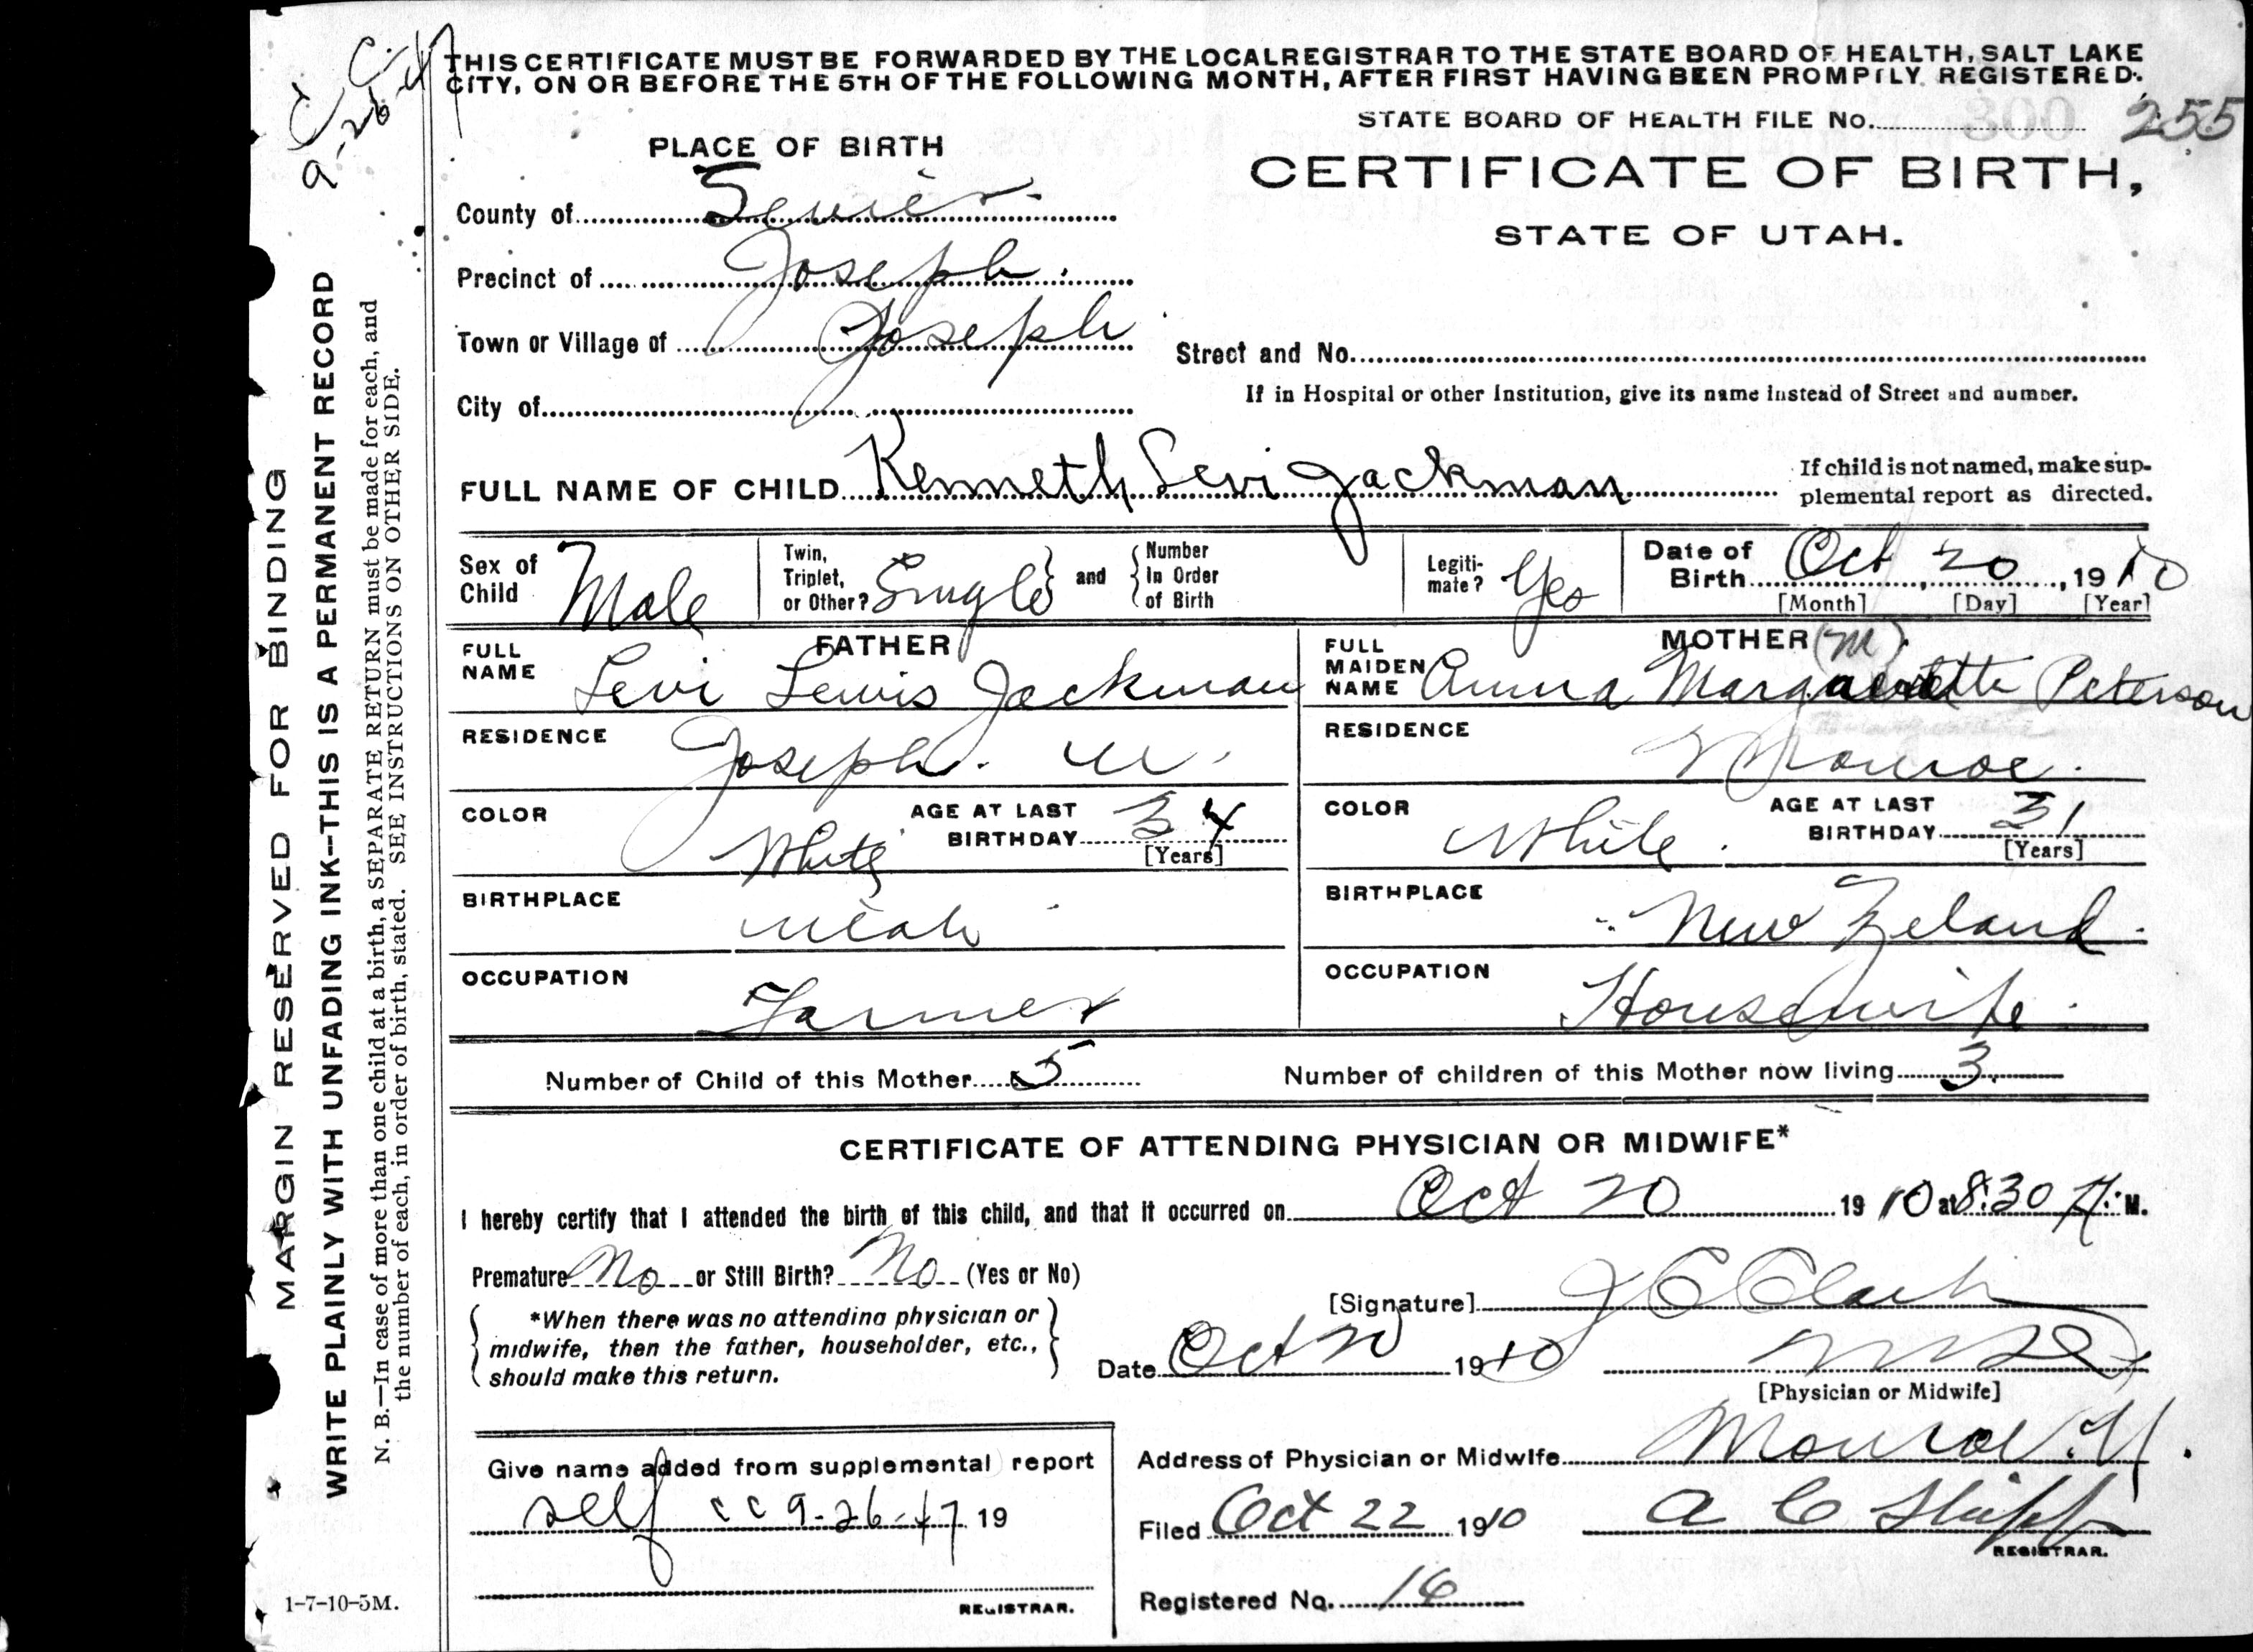 C C
9-26-47
THIS CERTIFICATE MUST BE FORWARDED BY THE LOCAL REGISTRAR TO THE STATE BOARD OF HEALTH, SALT LAKE
CITY, ON OR BEFORE THE 5TH OF THE FOLLOWING MONTH, AFTER FIRST HAVING BEEN PROMPTLY REGISTERED.
STATE BOARD OF HEALTH FILE No. 255
PLACE OF BIRTH
CERTIFICATE OF BIRTH,
STATE OF UTAH.
County of Sevier
Precinct of Joseph
Town or Village of Joseph
Street and No.
If in Hospital or other Institution, give its name instead of Street and number.
City of
FULL NAME OF CHILD Kenneth Levi Jackman
If child is not named, make sup-
plemental report as directed.
Sex of Child Male
Twin, Triplet, or Other? Single and Number In Order of Birth
Legiti-mate? Yes
Date of Birth Oct 20, 1910
[Month] [Day] [Year]
FATHER
FULL NAME Levi Lewis Jackman
RESIDENCE Joseph. U.
COLOR White AGE AT LAST BIRTHDAY 34
[Years]
BIRTHPLACE Utah
OCCUPATION Farmer
MOTHER (M)
FULL MAIDEN NAME Anna Peterson
RESIDENCE Monroe.
COLOR White. AGE AT LAST BIRTHDAY 31
[Years]
BIRTHPLACE New Zeland.
OCCUPATION Housewife.
Number of Child of this Mother 5 Number of children of this Mother now living 3.
CERTIFICATE OF ATTENDING PHYSICIAN OR MIDWIFE*
I hereby certify that I attended the birth of this child, and that it occurred on Oct 20 1910 at 8:30 A. M.
Premature No or Still Birth? No (Yes or No)
*When there was no attending physician or
midwife, then the father, householder, etc.,
should make this return.
[Signature] J C Clark
Date Oct 20 1910
[Physician or Midwife]
Address of Physician or Midwife Monroe U.
Give name added from supplemental report
self cc 9-26-47 19
REGISTRAR.
Filed Oct 22 1910 A C
REGISTRAR.
Registered No. 16
1-7-10-5M.
MARGIN RESERVED FOR BINDING
WRITE PLAINLY WITH UNFADING INK--THIS IS A PERMANENT RECORD
N. B.—In case of more than one child at a birth, a SEPARATE RETURN must be made for each, and
the number of each, in order of birth, stated. SEE INSTRUCTIONS ON OTHER SIDE.